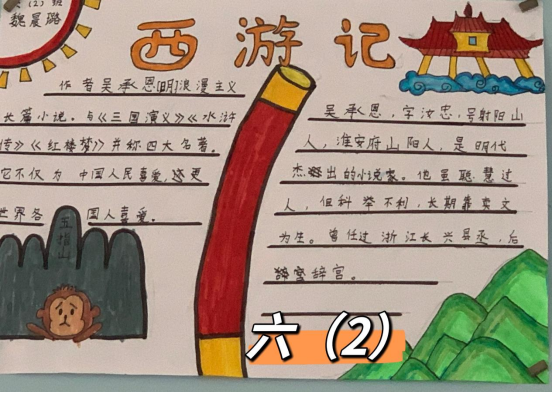 (2)班
魏晨璐
西游记
作者吴承恩[明]浪漫主义
长篇小说。与《三国演义》《水浒
传》《红楼梦》并称四大名著。
它不仅为中国人民喜爱,还更
世界各国人喜爱。
五指山
吴承恩,字汝忠,号射阳山
人,淮安府山阳人,是明代
杰出的小说家。他虽聪慧过
人,但科举不利,长期靠卖文
为生。曾任过浙江长兴县丞,后
辞官。
六(2)